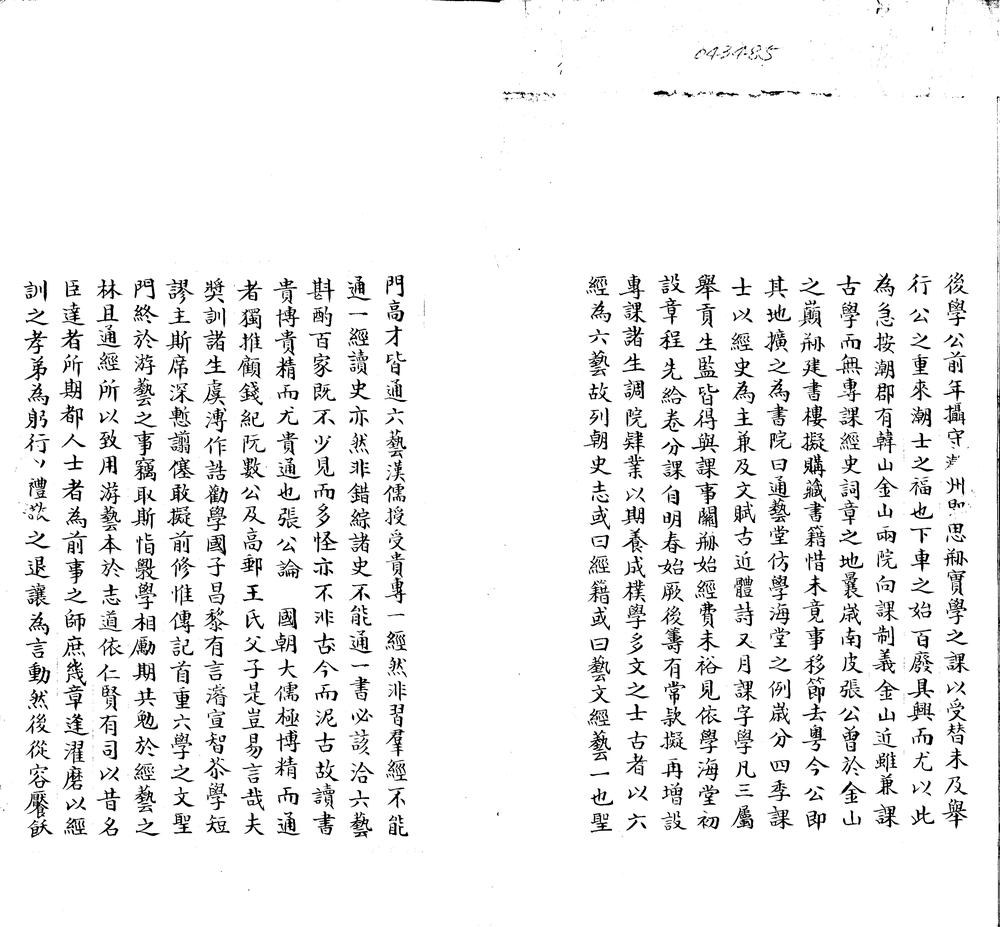 043485
後學公前年攝守潮州即思刱實學之課以受替未及舉
行公之重來潮士之福也下車之始百廢具興而尤以此
為急按潮郡有韓山金山兩院向課制義金山近雖兼課
古學而無專課經史詞章之地曩歲南皮張公曾於金山
之巔刱建書樓擬購藏書籍惜未竟事移節去粵今公即
其地擴之為書院曰通藝堂仿學海堂之例歲分四季課
士以經史為主兼及文賦古近體詩又月課字學凡三屬
舉貢生監皆得與課事關刱始經費未裕見依學海堂初
設章程先給卷分課自明春始厥後籌有常款擬再增設
專課諸生調院肄業以期養成樸學多文之士古者以六
經為六藝故列朝史志或曰經籍或曰藝文經藝一也聖
門高才皆通六藝漢儒授受貴專一經然非習羣經不能
通一經讀史亦然非錯綜諸史不能通一書必該洽六藝
斟酌百家既不少見而多怪亦不非古今而泥古故讀書
貴博貴精而尤貴通也張公論 國朝大儒極博精而通
者獨推顧錢紀阮數公及高郵王氏父子是豈易言哉夫
獎訓諸生虞溥作誥勸學國子昌黎有言濬宣智苶學短
謬主斯席深慙譾僿敢擬前修惟傳記首重六學之文聖
門終於游藝之事竊取斯恉斅學相勵期共勉於經藝之
林且通經所以致用游藝本於志道依仁賢有司以昔名
臣達者所期都人士者為前事之師庶幾章逢濯磨以經
訓之孝弟為躬行以禮教之退讓為言動然後從容饜飫